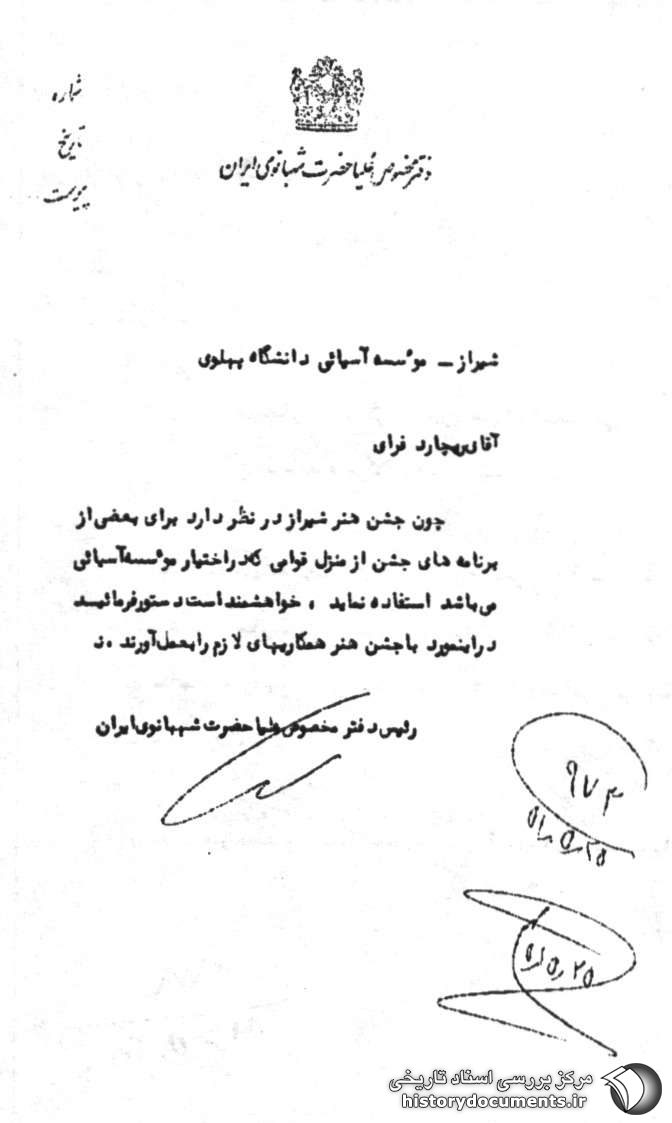 شماره
تاریخ
پیوست
دفتر مخصوص علیاحضرت شهبانوی ایران
شیراز – موٴسسه آسیائی دانشگاه پهلوی
آقای ریچارد فرای
چون جشن هنر شیراز در نظر دارد برای بعضی از
برنامه های جشن از منزل قوامی که در اختیار موٴسسه آسیائی
می باشد استفاده نماید ، خواهشمند است دستور فرمائید
در اینمورد با جشن هنر همکاریهای لازم را بعمل آورند .
رئیس دفتر مخصوص علیا حضرت شهبانوی ایران
۹۷۴
۵۱٫۵٫۲۵
۵۱٫۵٫۲۵
مرکز بررسی اسناد تاریخی
historydocuments.ir